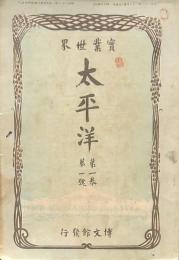 界世業實
太平洋
第一卷
第一號
行發館文博